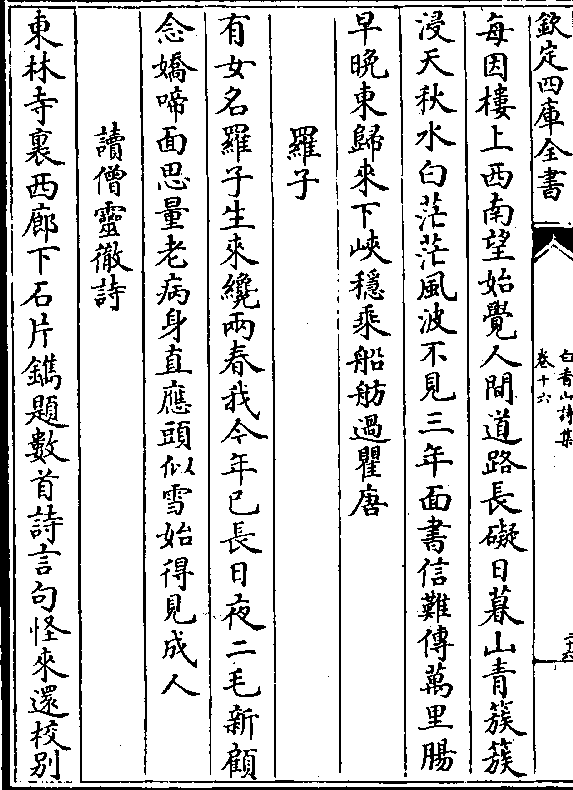 欽定四庫全書
白香山詩集
卷十六
二十六
每因樓上西南望始覺人間道路長礙日暮山青簇簇
浸天秋水白茫茫風波不見三年面書信難傳萬里腸
早晚東歸來下峽穩乘船舫過瞿唐
羅子
有女名羅子生來纔兩春我今年已長日夜二毛新顧
念嬌啼面思量老病身直應頭似雪始得見成人
讀僧靈徹詩
東林寺裏西廊下石片鐫題數首詩言句怪來還校別